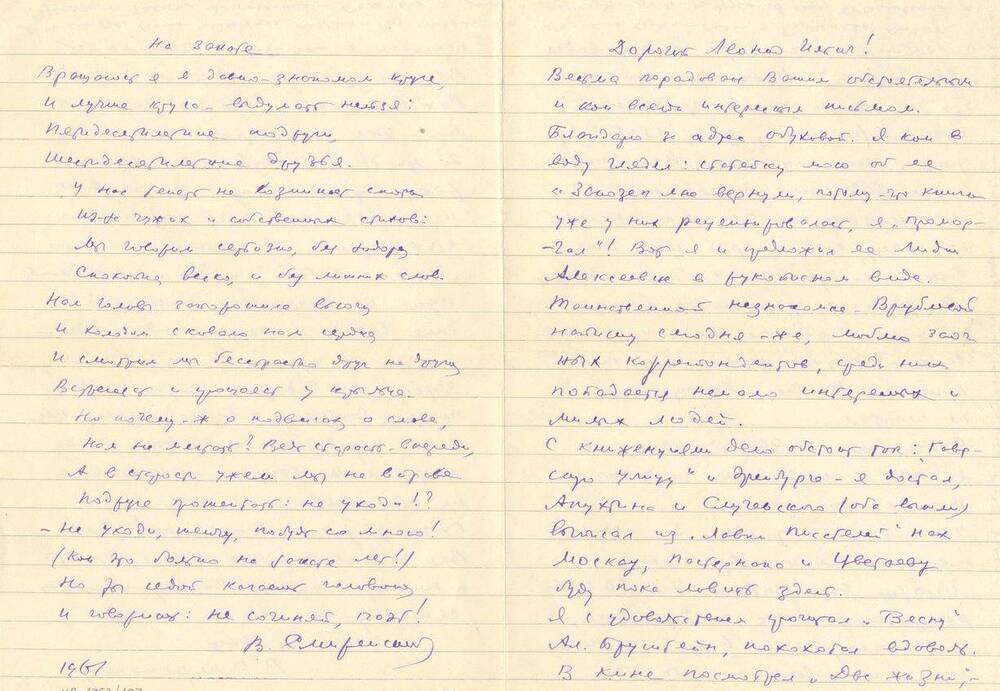 На закате
Вращаюсь я в давно-знакомом круге,
И лучше круга - выдумать нельзя:
Пятидесятилетние подруги,
Шестидесятилетние друзья.
У нас теперь не возникает спора
Из-за чужих и собственных стихов:
Мы говорим серьезно, без задора,
Спокойно, веско, и без лишних слов.
Нам головы запорошила вьюга
И холодом сковало нам сердца
И смотрим мы бесстрастно друг на друга
Встречаясь и прощаясь у крыльца.
Но почему-ж о подвигах, о славе,
Нам не мечтать? Ведь старость - впереди,
А в старости ужели мы не вправе
Подруге прошептать: не уходи!?
- Не уходи, шепчу, побудь со мною!
(Как это больно на закате лет!)
Но ты седой качаешь головою
И говоришь: не сочиняй, поэт!
В. Смиренский
1961
Дорогой Леонид Ильич!
Весьма порадован Вашим обстоятельным
и как всегда интересным письмом.
Благодарю за адрес Обуховой. Я как в
воду глядел: статейку мою об ее
мне вернули, потому-что книга
уже у них рецензировалась, я "промор-
гал"! Вот я и предложил ее Лидии
Алексеевне в рукописном виде.
Таинственной незнакомке - Врублевой
напишу сегодня-же, люблю заоч
ных корреспондентов, среди них
попадается немало интересных и
милых людей.
С книженциями дело обстоит так:
улицу" и Эренбурга - я достал,
Апухтина и Случевского (оба вышли)
выписал из "Лавки Писателей" на
Москву, Пастернака и Цветаеву
буду пока ловить здесь.
Я с удовольствием прочитал "Весну"
Ал. Бруштейн, похохотал вдоволь.
В кино посмотрел "Две жизни",-